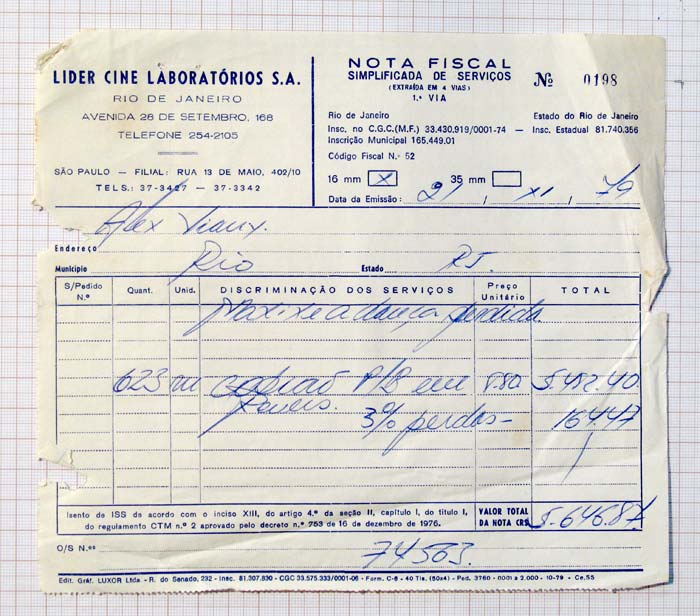 LIDER CINE LABORATÓRIOS S.A.
RIO DE JANEIRO
AVENIDA 28 DE SETEMBRO, 168
TELEFONE 254-2105
SÃO PAULO — FILIAL: RUA 13 DE MAIO, 402/10
TELS.: 37-3427 — 37-3342
NOTA FISCAL
SIMPLIFICADA DE SERVIÇOS
(EXTRAÍDA EM 4 VIAS)
1.ª VIA
Nº 0198
Rio de Janeiro Estado do Rio de Janeiro
Insc. no C.G.C.(M.F.) 33.430.919/0001-74 — Insc. Estadual 81.740.356
Inscrição Municipal 165.449.01
Código Fiscal N.º 52
16 mm X 35 mm
Data da Emissão: 21 / XI / 79
Alex Viany.
Endereço
Município Rio Estado RJ.
S/Pedido N.º Quant. Unid. DISCRIMINAÇÃO DOS SERVIÇOS Preço Unitário TOTAL
Maxixe a dança perdida
623 m P/B em 8.80 5.482,40
3% perdas - 164,47
Isento de ISS de acordo com o inciso XIII, do artigo 4.º da seção II, capítulo I, do título I,
do regulamento CTM n.º 2 aprovado pelo decreto n.º 753 de 16 de dezembro de 1976.
VALOR TOTAL DA NOTA CR$ 5.646,87
O/S N.os 74563.
Edit. Gráf. LUXOR Ltda - R. do Senado, 232 - Insc. 81.307.830 - CGC 33.575.333/0001-06 - Form. C-6 - 40 Tls. (50x4) - Ped. 3760 - 0001 a 2.000 - 10-79 - Ce.55